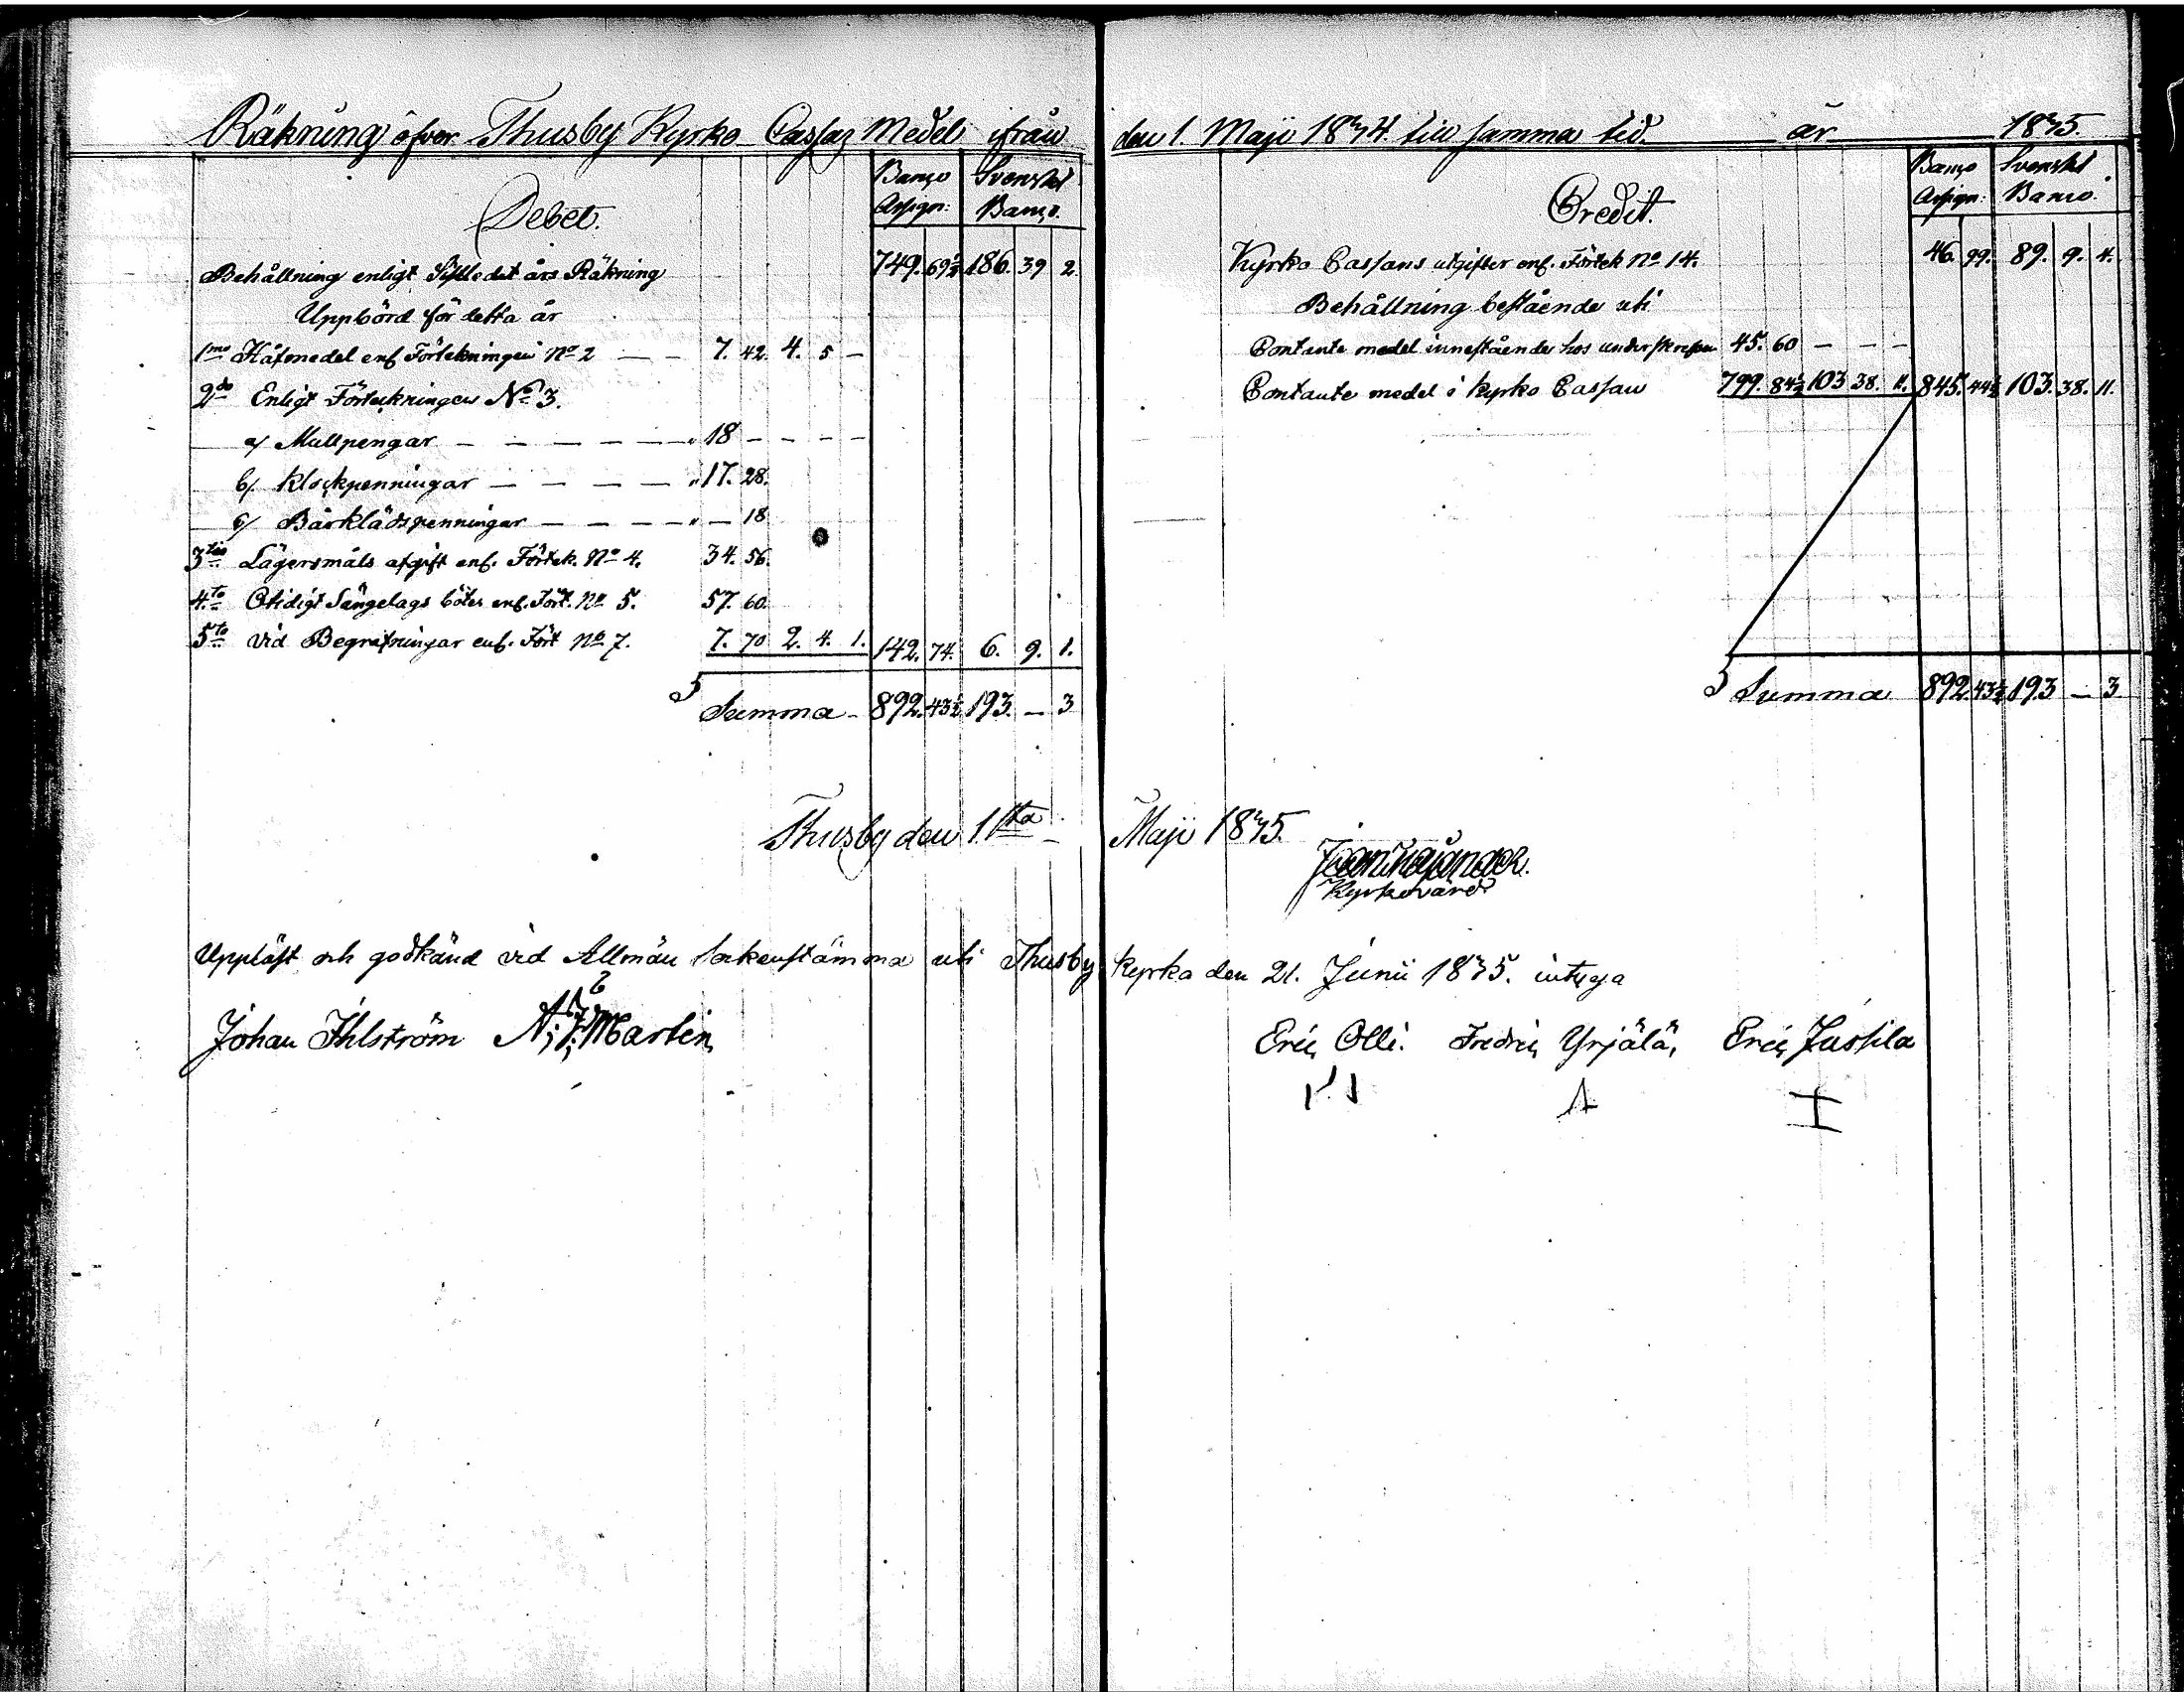 Räkning öfver Thusby Kyrko Cassas Medel ifrån
Banco Assign: Svenskt Banco.
Debet.
Behållning enligt sistledet års Räkning 749. 69½ 186. 39 2.
Uppbörd för detta år
1mo Håfmedel enl. Förtekningen No 2 — — 7. 42. 4. 5 —
2do Enligt Förtekningen No 3.
a/ Mullpengar — — — — — " 18 — — — —
b/ Klockpenningar — — — — — " 17. 28.
c/ Bårklädspenningar — — — — " — 18
3tio Lägersmåls afgift enl. Förtek. No 4. 34. 56.
4to Otidigt Sängelags böter enl. Fört. No 5. 57. 60.
5to Vid Begrafningar enl. Fört No 7. 7. 70 2. 4. 1. 142. 74. 6. 9. 1.
Summa - 892. 43½ 193. — 3
den 1. Maji 1834. till samma tid. år 1835.
Banco Assign: Svenskt Banco.
Credit.
Kyrko Cassans utgifter enl. Förtek No 14. 46. 99. 89. 9. 4.
Behållning bestående uti
Contante medel innestående hos underskrefven 45. 60 — — —
Contante medel i Kyrko Cassan 799. 84½ 103 38. 11. 845. 44½ 103. 38. 11.
Summa 892. 43½ 193 — 3
Thusby den 1sta Maji 1835.
Kyrkovärd
Uppläst och godkänd vid Allmän Sockenstämma uti Thusby Kyrka den 21. Junii 1835. intyga
Johan Ihlström Martin Eric Olli. Fredric Yrjälä, Eric Jussila